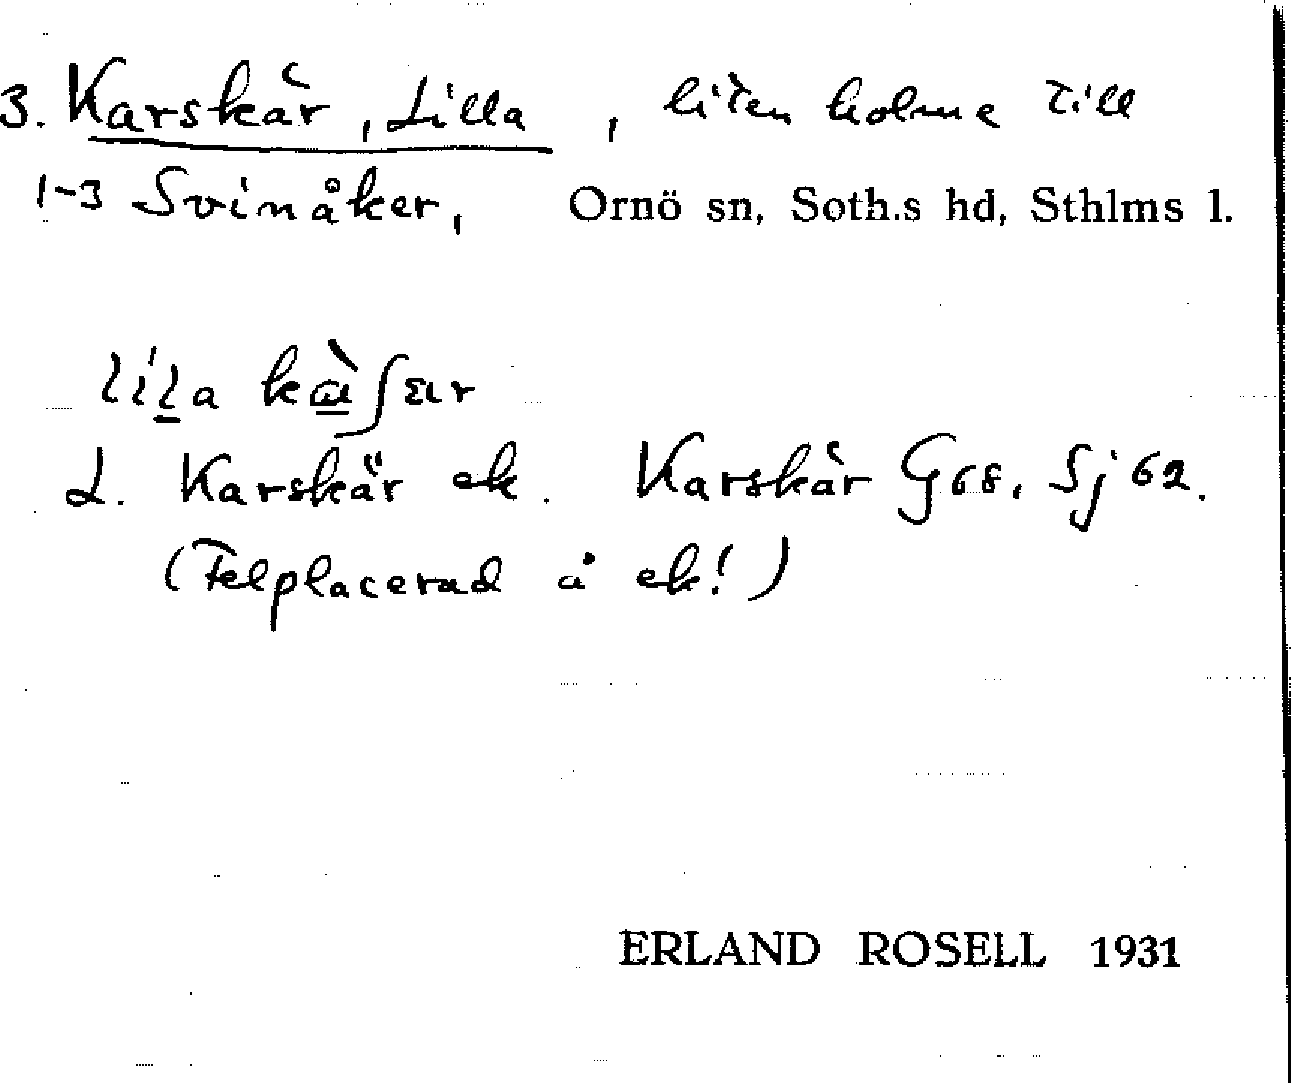 3. Karskär, Lilla, liten holme till
1-3 Svinåker, Ornö sn, Soth.s hd, Sthlms l.
lila
L. Karskär ek. Karskär G68, Sj 62.
(Felplacerad å ek!)
ERLAND ROSELL 1931